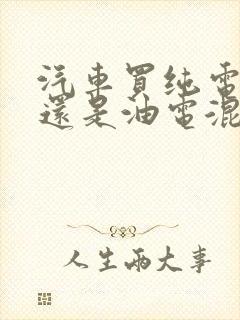 汽車買纯電
還是油電混
人生兩大事